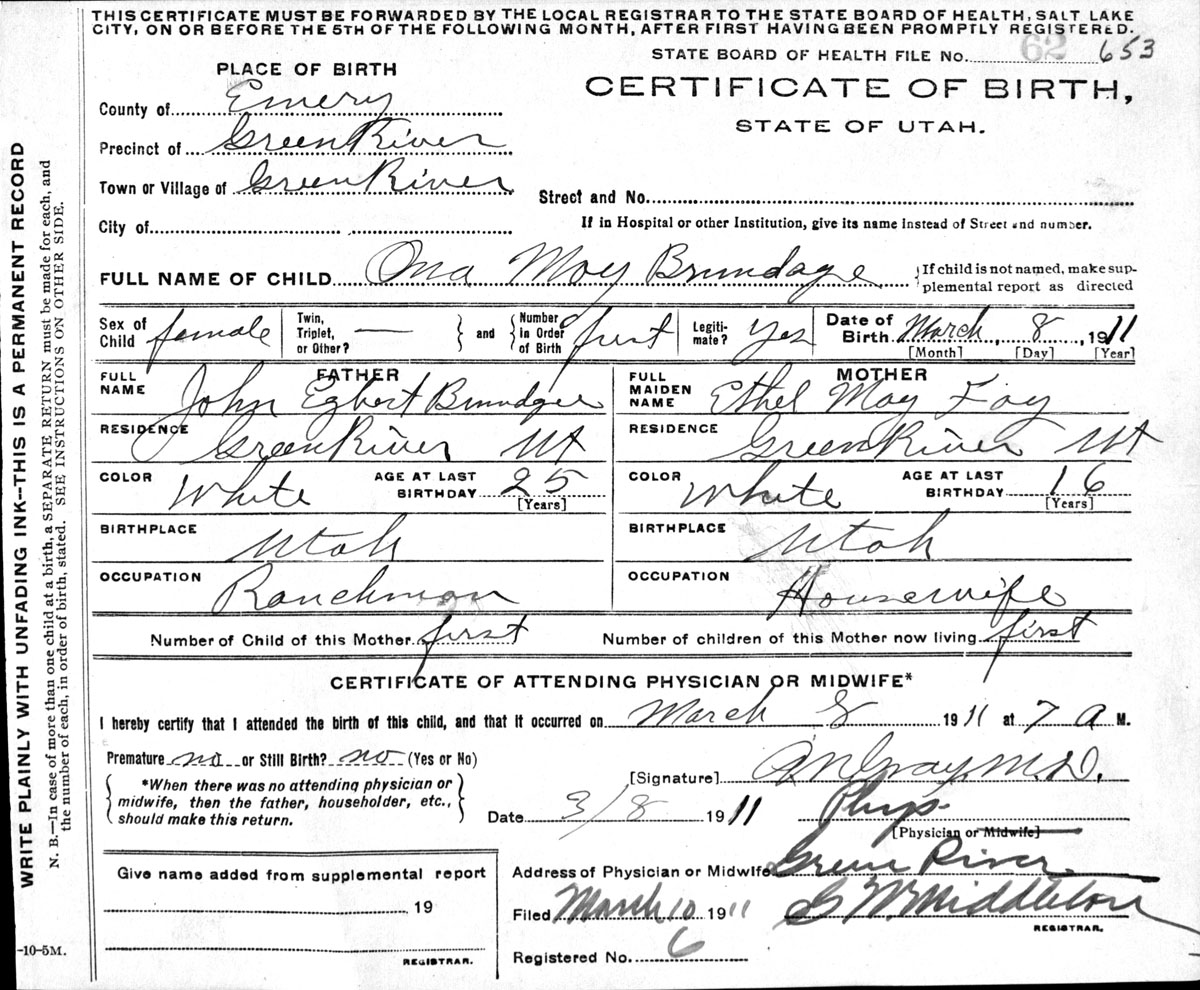 THIS CERTIFICATE MUST BE FORWARDED BY THE LOCAL REGISTRAR TO THE STATE BOARD OF HEALTH, SALT LAKE
CITY, ON OR BEFORE THE 5TH OF THE FOLLOWING MONTH, AFTER FIRST HAVING BEEN PROMPTLY REGISTERED.
STATE BOARD OF HEALTH FILE No. 62 653
PLACE OF BIRTH
CERTIFICATE OF BIRTH,
STATE OF UTAH.
County of Emery
Precinct of Green River
Town or Village of Green River
Street and No.
City of
If in Hospital or other Institution, give its name instead of Street and number.
FULL NAME OF CHILD Ona May Brundage
{If child is not named, make sup-
plemental report as directed
Sex of Child female
Twin, Triplet, or Other? —
and
Number in Order of Birth first
Legiti-mate? Yes
Date of Birth March, 8, 1911
[Month] [Day] [Year]
FATHER
FULL NAME John Egbert Brundge
RESIDENCE Green River Ut
COLOR White AGE AT LAST BIRTHDAY 25
[Years]
BIRTHPLACE Utah
OCCUPATION Ranchman
MOTHER
FULL MAIDEN NAME Ethel May Foy
RESIDENCE Green River Ut
COLOR White AGE AT LAST BIRTHDAY 16
[Years]
BIRTHPLACE Utah
OCCUPATION Housewife
Number of Child of this Mother first Number of children of this Mother now living first
CERTIFICATE OF ATTENDING PHYSICIAN OR MIDWIFE*
I hereby certify that I attended the birth of this child, and that it occurred on March 8 1911 at 7 a M.
Premature no or Still Birth? no (Yes or No)
*When there was no attending physician or
midwife, then the father, householder, etc.,
should make this return.
[Signature] Gray M.D.
Date 3/8 1911 Phys.
[Physician or Midwife]
Address of Physician or Midwife Green River
Filed March 10 1911 G W Middleton
REGISTRAR.
Registered No. 6
Give name added from supplemental report
19
REGISTRAR.
WRITE PLAINLY WITH UNFADING INK—THIS IS A PERMANENT RECORD
N. B.—In case of more than one child at a birth, a SEPARATE RETURN must be made for each, and
the number of each, in order of birth, stated. SEE INSTRUCTIONS ON OTHER SIDE.
-10-5M.